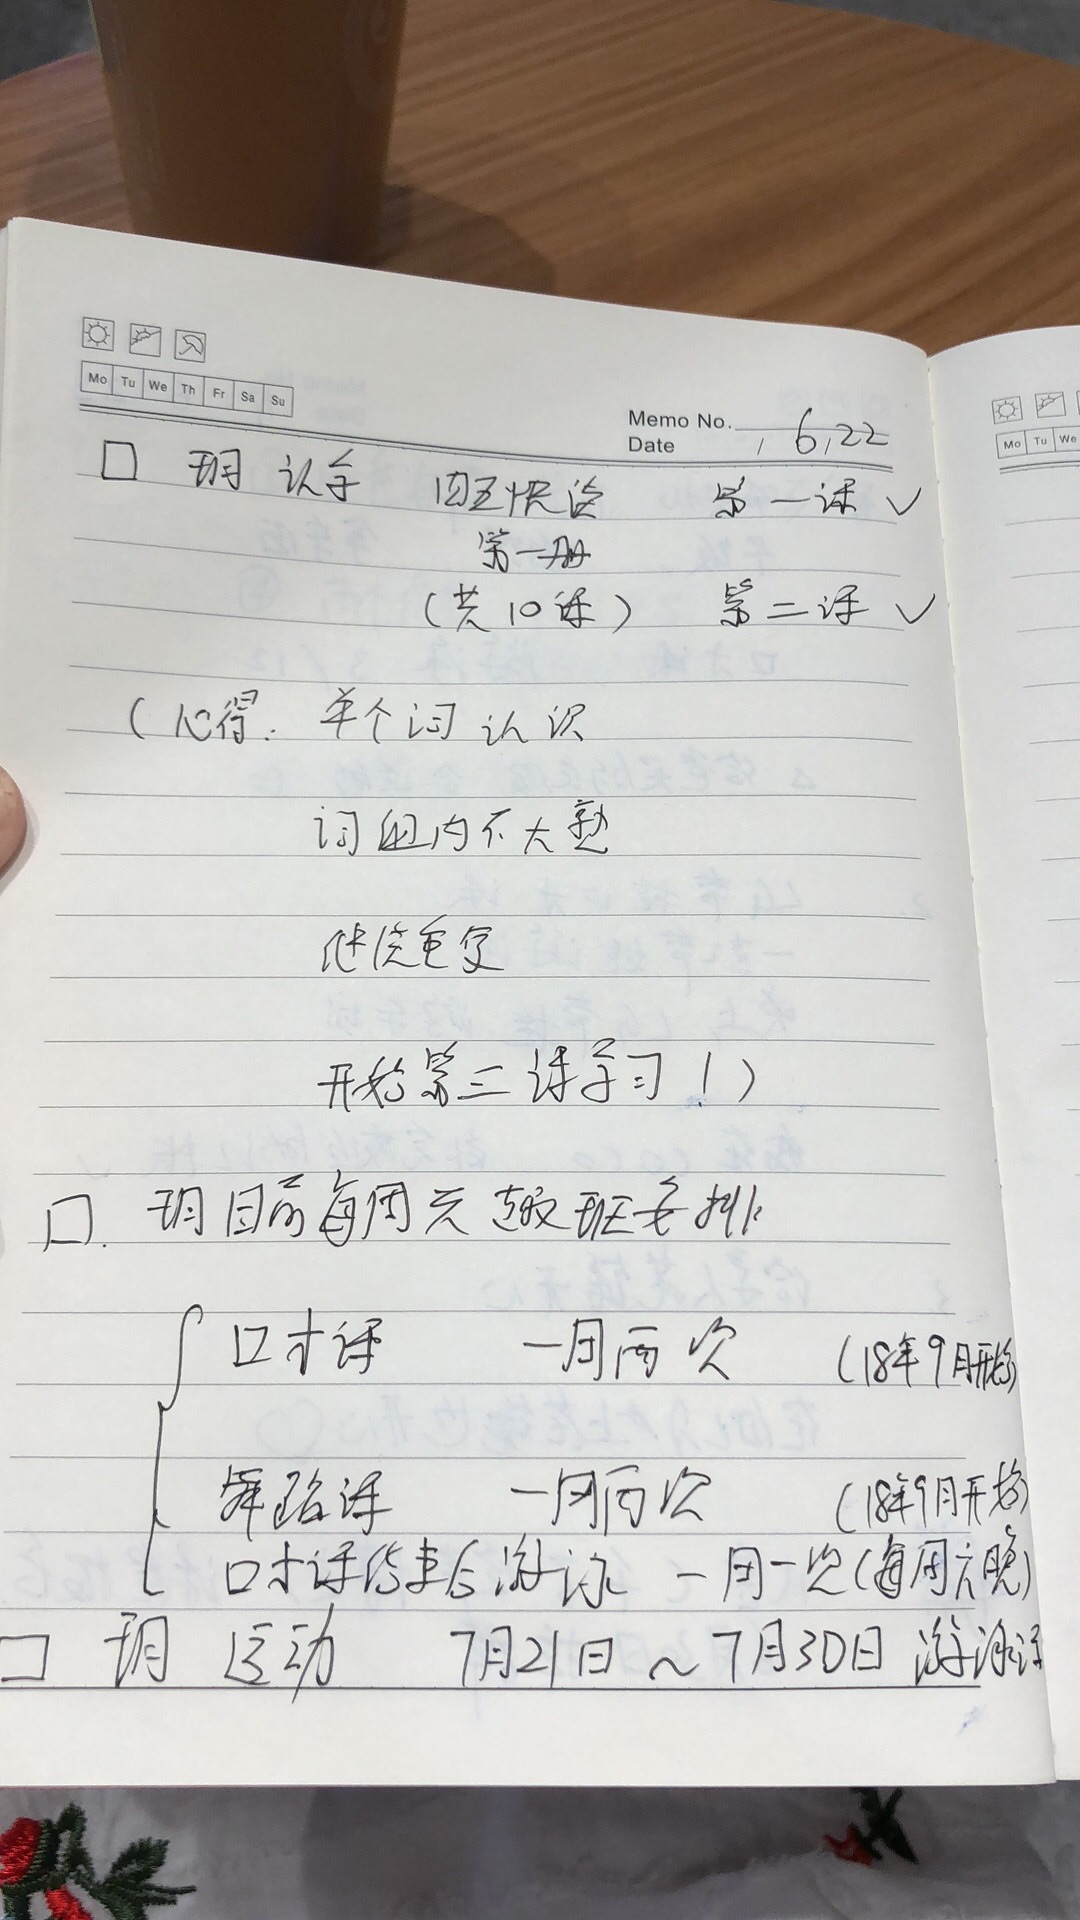 Mo Tu We Th Fr Sa Su
Memo No.
Date 6.22
玥 认字 四五快读 第一课 ✓
第一册
(共10课) 第二课 ✓
(心得: 单个词认识
词组内不大熟
继续重复
开始第三课学习!)
玥目前每周兴趣班安排
口才课 一周两次 (18年9月开始)
舞蹈课 一周两次 (18年9月开始)
口才课结束后游泳 一周一次(每周六晚)
玥 运动 7月21日~7月30日 游泳课
Mo Tu We